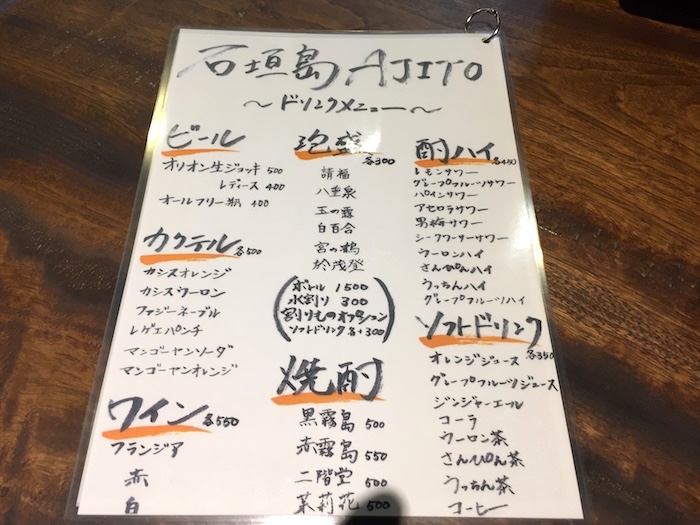 石垣島 AJITO
～ドリンクメニュー～
ビール
オリオン生ジョッキ 500
レディース 400
オールフリー瓶 400
カクテル 各500
カシスオレンジ
カシスウーロン
ファジーネーブル
レゲエパンチ
マンゴーヤンソーダ
マンゴーヤンオレンジ
ワイン 各550
フランジア
赤
白
泡盛 各300
請福
八重泉
玉の露
白百合
宮の鶴
於茂登
ボトル 1500
水割り 300
割りものオプション
ソフトドリンク各+300
焼酎
黒霧島 500
赤霧島 550
二階堂 500
茉莉花 500
酎ハイ 各450
レモンサワー
グレープフルーツサワー
パインサワー
アセロラサワー
男梅サワー
シークワーサーサワー
ウーロンハイ
さんぴんハイ
うっちんハイ
グレープフルーツハイ
ソフトドリンク 各350
オレンジジュース
グレープフルーツジュース
ジンジャーエール
コーラ
ウーロン茶
さんぴん茶
うっちん茶
コーヒー